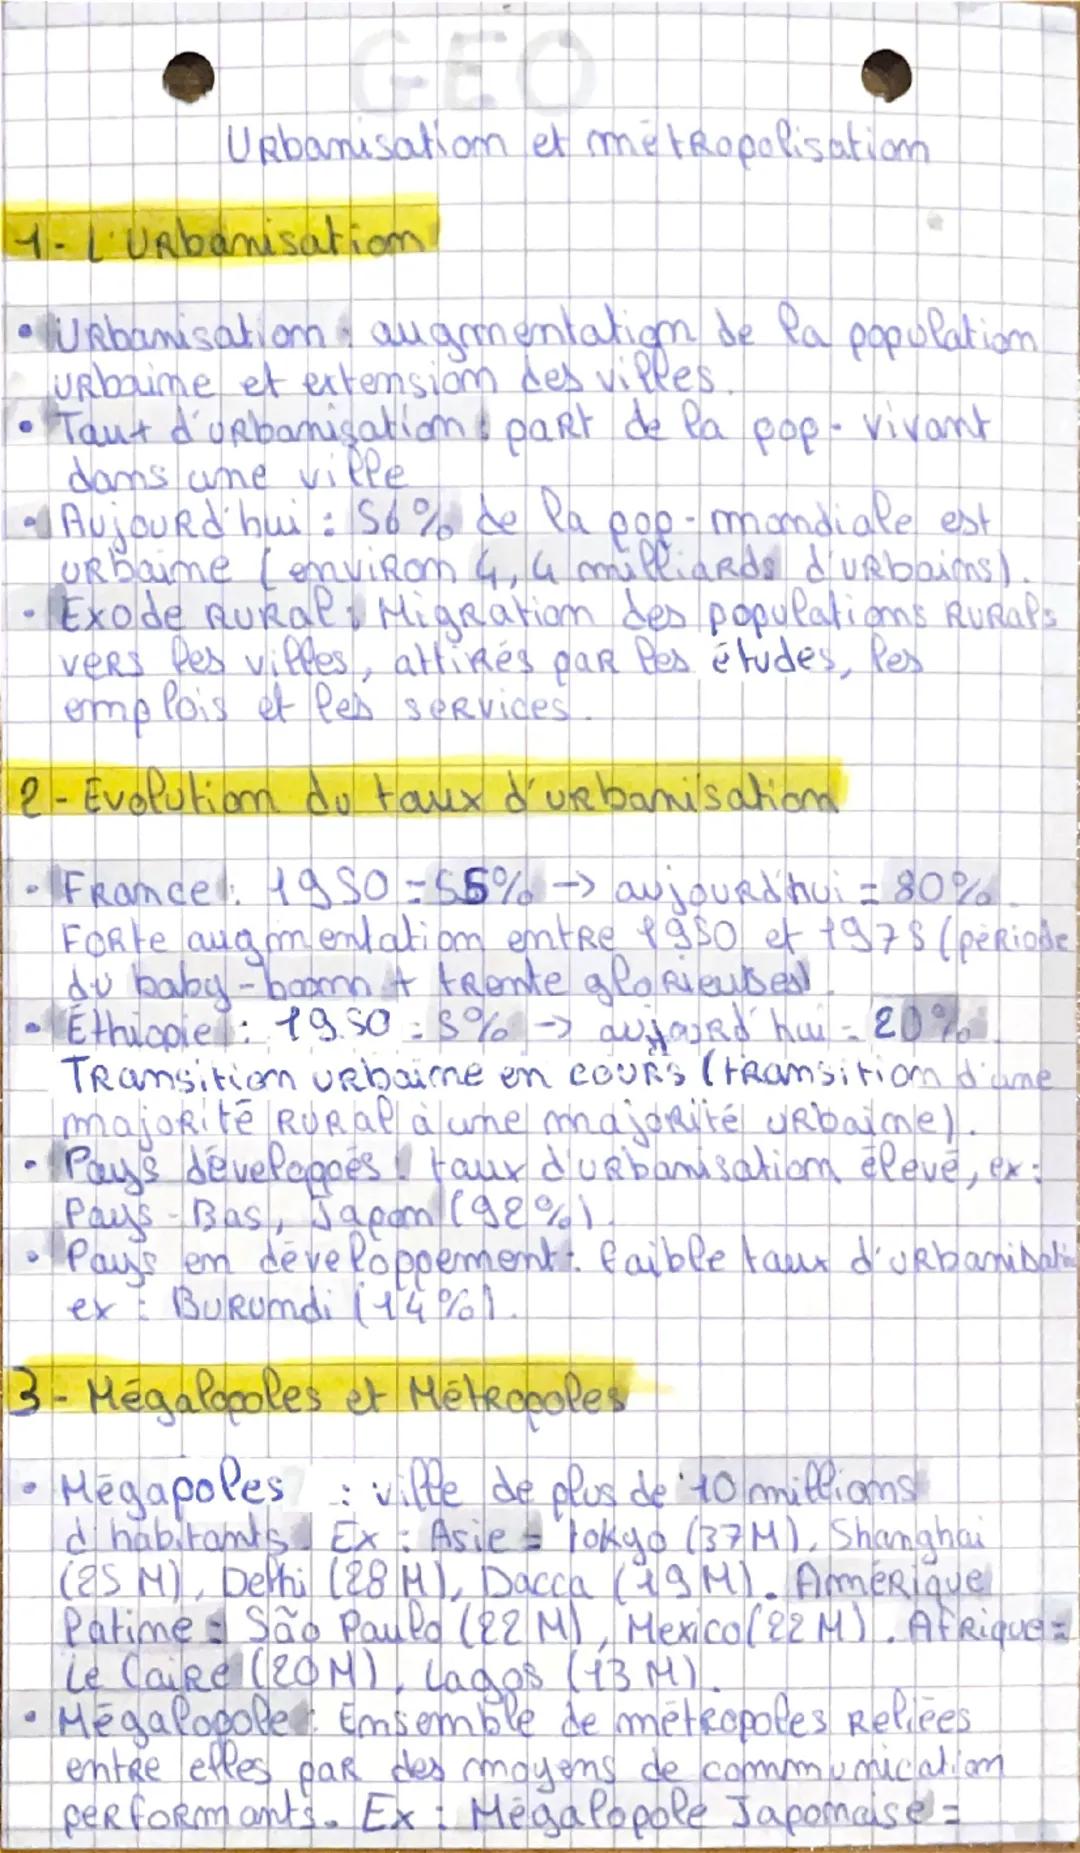 GEO
Urbanisation et métropolisation
1- L'Urbanisation
• Urbanisation : augmentation de la population
urbaine et extension des villes.
• Taux d'urbanisation : part de la pop. vivant
dans une ville
• Aujourd'hui : 56% de la pop. mondiale est
urbaine (environ 4,4 milliards d'urbains).
• Exode rural : Migration des populations rurals
vers les villes, attirés par les études, les
emplois et les services.
2- Evolution du taux d'urbanisation
• France : 1950 = 55% → aujourd'hui = 80%.
Forte augmentation entre 1950 et 1975 (période
du baby-boom + trente glorieuses).
• Éthiopie : 1950 = 5% → aujourd'hui = 20%.
Transition urbaine en cours (transition d'une
majorité rural à une majorité urbaine).
• Pays développés : taux d'urbanisation élevé, ex :
Pays-Bas, Japon (92%).
• Pays en développement : faible taux d'urbanisation
ex : Burundi (14%).
3- Mégalopoles et Métropoles
• Mégapoles : ville de plus de 10 millions
d'habitants. Ex : Asie = Tokyo (37M), Shanghai
(25 M), Delhi (28 M), Dacca (19 M). Amérique
latine = São Paulo (22 M), Mexico (22 M). Afrique =
Le Caire (20M), Lagos (13 M).
• Mégalopole : Ensemble de métropoles reliées
entre elles par des moyens de communication
performants. Ex : Mégalopole Japonaise =